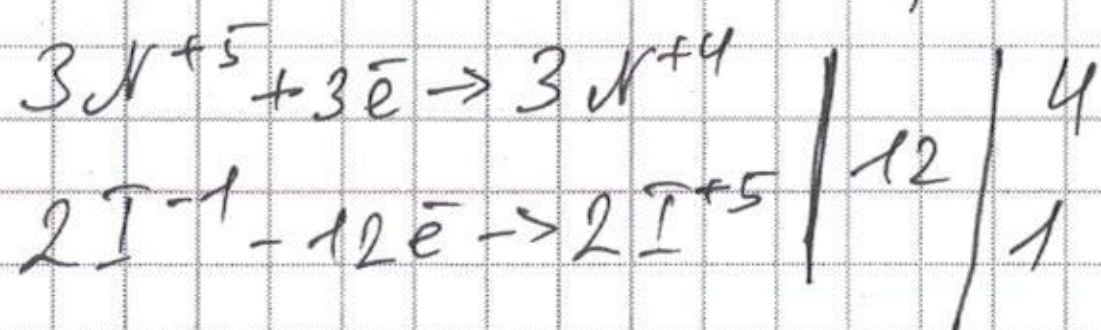 3N⁺⁵ + 3ē → 3N⁺⁴ | 12 | 4
2I⁻¹ - 12ē → 2I⁺⁵ | 1